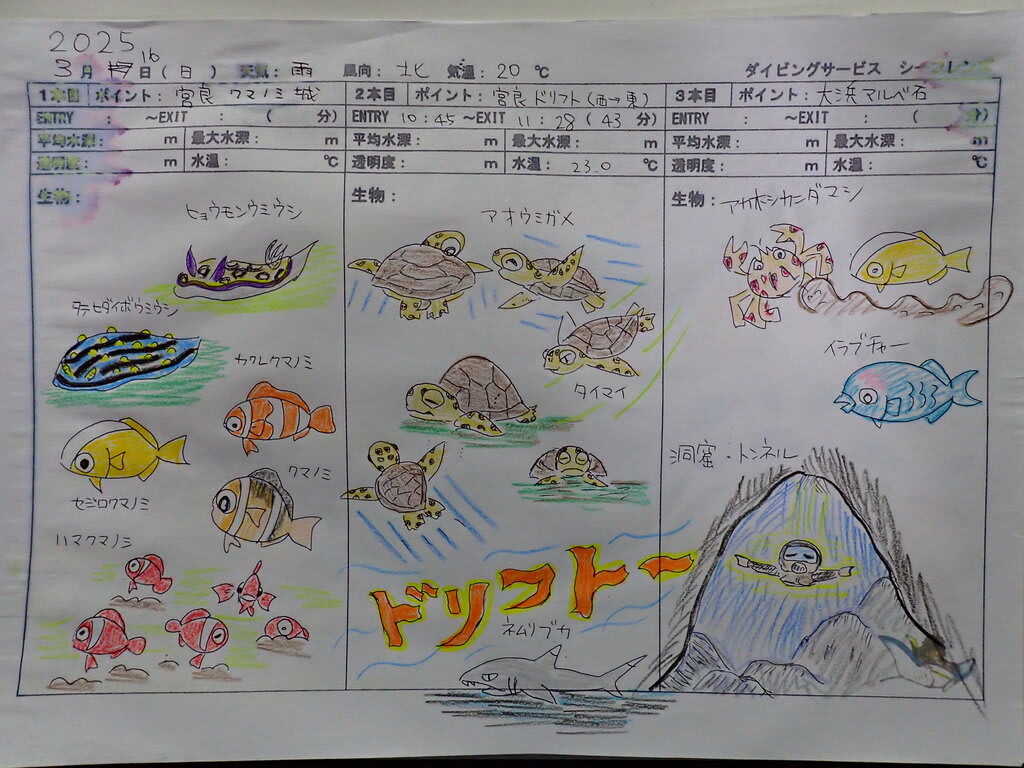 2025
16
3月 17日(日) 天気: 雨 風向: 北 気温: 20 ℃ ダイビングサービス シーフレンズ
1本目 ポイント: 宮良 クマノミ城 2本目 ポイント: 宮良 ドリフト(西→東) 3本目 ポイント: 大浜マルベ石
ENTRY : ~EXIT : ( 分) ENTRY 10:45 ~EXIT 11:28 (43 分) ENTRY : ~EXIT : ( 分)
平均水深: m 最大水深: m 平均水深: m 最大水深: m 平均水深: m 最大水深: m
透明度: m 水温: ℃ 透明度: m 水温: 23.0 ℃ 透明度: m 水温: ℃
生物:
ヒョウモンウミウシ
タテヒダイボウミウシ
カクレクマノミ
セジロクマノミ
クマノミ
ハマクマノミ
生物:
アオウミガメ
タイマイ
ドリフトー
ネムリブカ
生物:
アカホシカニダマシ
イラブチャー
洞窟・トンネル